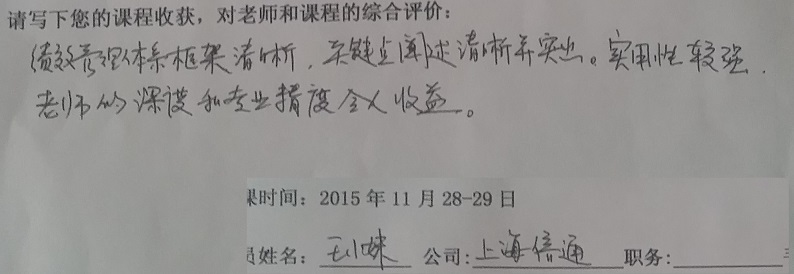 请写下您的课程收获，对老师和课程的综合评价：
绩效管理体系框架清晰，关键点阐述清晰并突出。实用性较强，
老师的深度和专业精度令人收益。
课时间：2015年11月28-29日
员姓名： 公司：上海信通 职务：